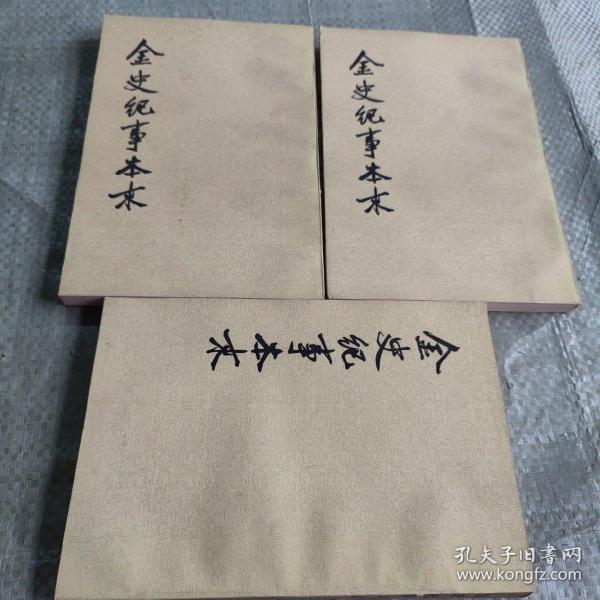 金史纪事本末
金史纪事本末
金史纪事本末
孔夫子旧书网
www.kongfz.com